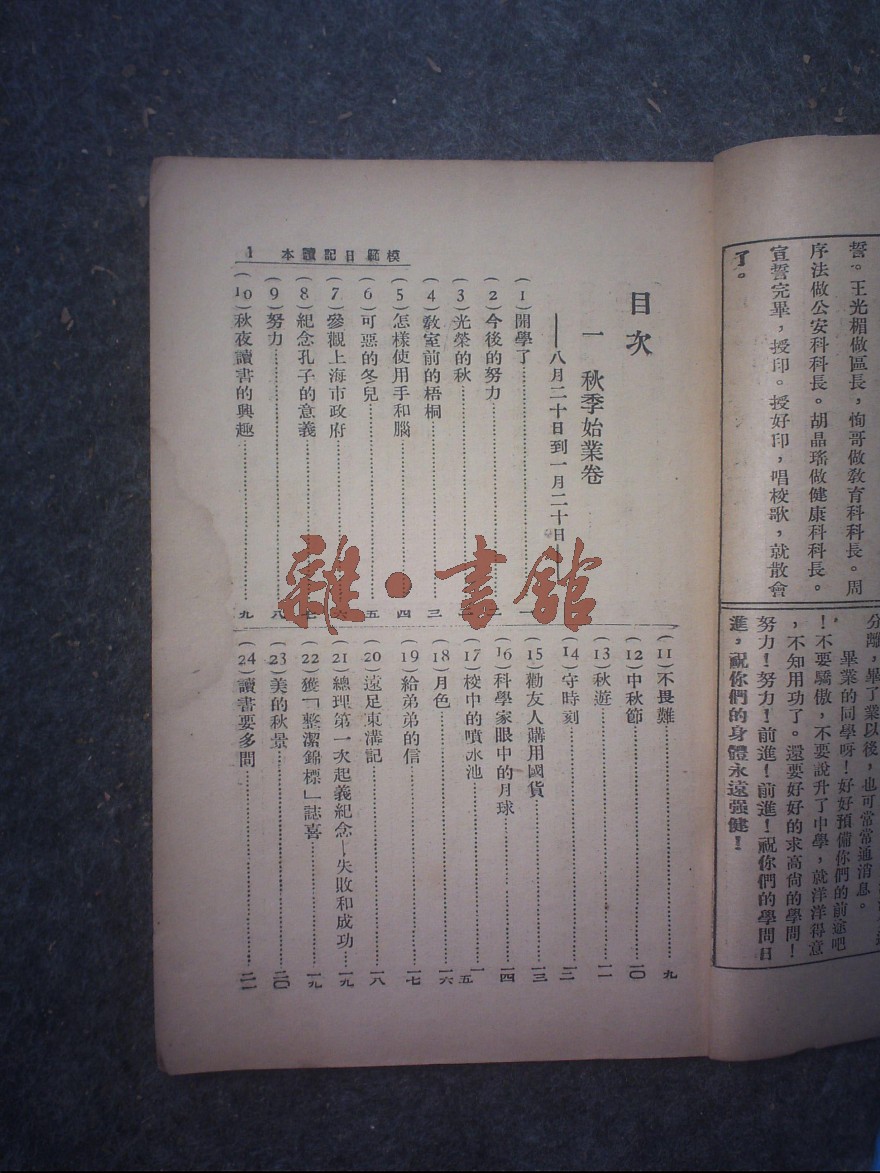 誓。王光楣做區長，恂哥做敎育科科長。周
序法做公安科科長。胡晶瑤做健康科科長。
宣誓完畢，授印。授好印，唱校歌，就散會
了。
分離，畢了業以後，也可常常通消息。
畢業的同學呀！好好預備你們的前途吧
！不要驕傲，不要說升了中學，就洋洋得意
，不知用功了。還要好好的求高尚的學問！
努力！努力！前進！前進！祝你們的學問日
進，祝你們的身體永遠强健！
模範日記讀本 1
目次
一 秋季始業卷
——八月二十日到一月二十日
(1)開學了……一
(2)今後的努力……
(3)光榮的秋……
(4)敎室前的梧桐……三
(5)怎樣使用手和腦……四
(6)可惡的冬兒……五
(7)參觀上海市政府……
(8)紀念孔子的意義……七
(9)努力……八
(10)秋夜讀書的興趣……九
(11)不畏難……九
(12)中秋節……一〇
(13)秋遊……一一
(14)守時刻……一二
(15)勸友人購用國貨……一三
(16)科學家眼中的月球……一四
(17)校中的噴水池……一五
(18)月色……一六
(19)給弟弟的信……一七
(20)遠足東溝記……一八
(21)總理第一次起義紀念—失敗和成功……一九
(22)獲「整潔錦標」誌喜……一九
(23)美的秋景……二〇
(24)讀書要多問……二一
雜·書館